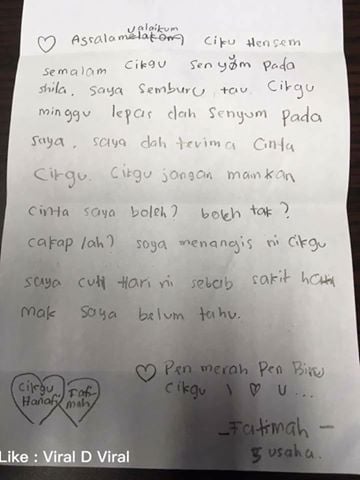 ♡ Assalamualaikum Cikgu Hensem
semalam Cikgu senyum pada
shila. saya semburu tau. Cikgu
minggu lepas dah senyum pada
saya. saya dah terima cinta
Cikgu. Cikgu jangan mainkan
cinta saya boleh? boleh tak?
cakap lah? saya menangis ni cikgu
saya cuti Hari ni sebab sakit hati
mak saya belum tahu.
♡ Pen merah Pen Biru
Cikgu I ♡ U...
Cikgu Hanafi
Fatimah
- Fatimah -
5 usaha.
Like : Viral D Viral